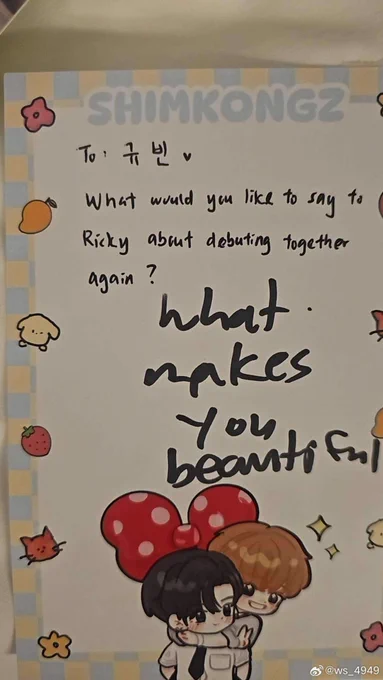 SHIMKONGZ
To. 규빈 ♥
What would you like to say to
Ricky about debuting together
again?
What.
makes
you
beautiful
@ws_4949